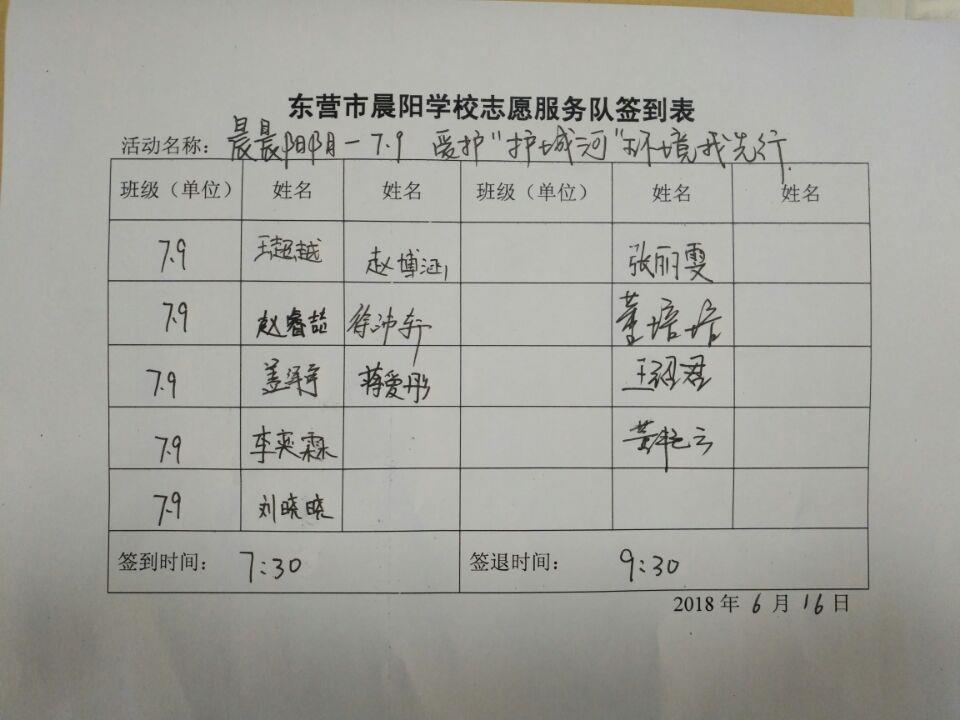 东营市晨阳学校志愿服务队签到表
活动名称：晨晨阳阳一7.9 爱护"护城河"环境我先行
班级（单位） 姓名 姓名 班级（单位） 姓名 姓名
7.9 王超越 赵博涵 张丽雯
7.9 赵睿喆 徐沛轩 董培培
7.9 蒋爱彤
7.9 李奕霖 黄艳云
7.9 刘晓晓
签到时间： 7:30 签退时间： 9:30
2018 年 6 月 16 日